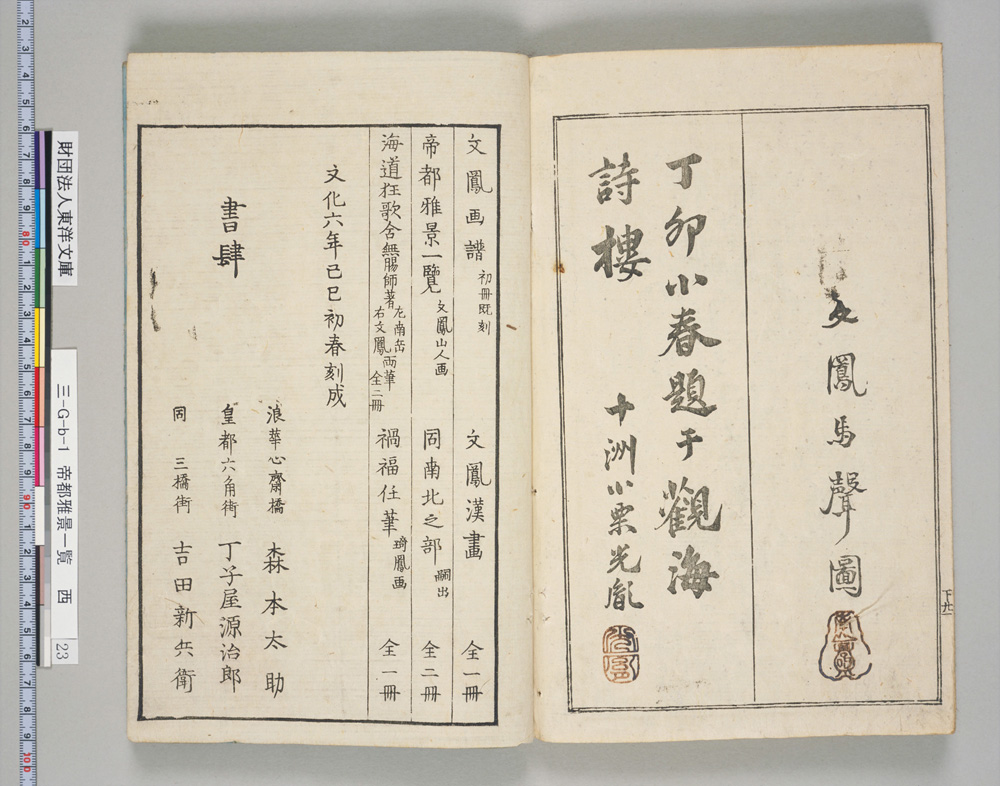 文鳳馬聲圖
丁卯小春題于觀海
詩樓
十洲小栗光胤
下廿一
文鳳画譜 初冊既刻 文鳳漢畫 全一冊
帝都雅景一覽 文鳳山人画 同南北之部 嗣出 全二冊
海道狂歌合 無腸師著 左南岳 右文鳳 両筆 全二冊 禍福任筆 琦鳳画 全一冊
文化六年己巳初春刻成
書肆
浪華心齋橋 森本太助
皇都六角街 丁子屋源治郎
同 三橋街 吉田新兵衛
財団法人東洋文庫
三-G-b-1 帝都雅景一覧 西
23